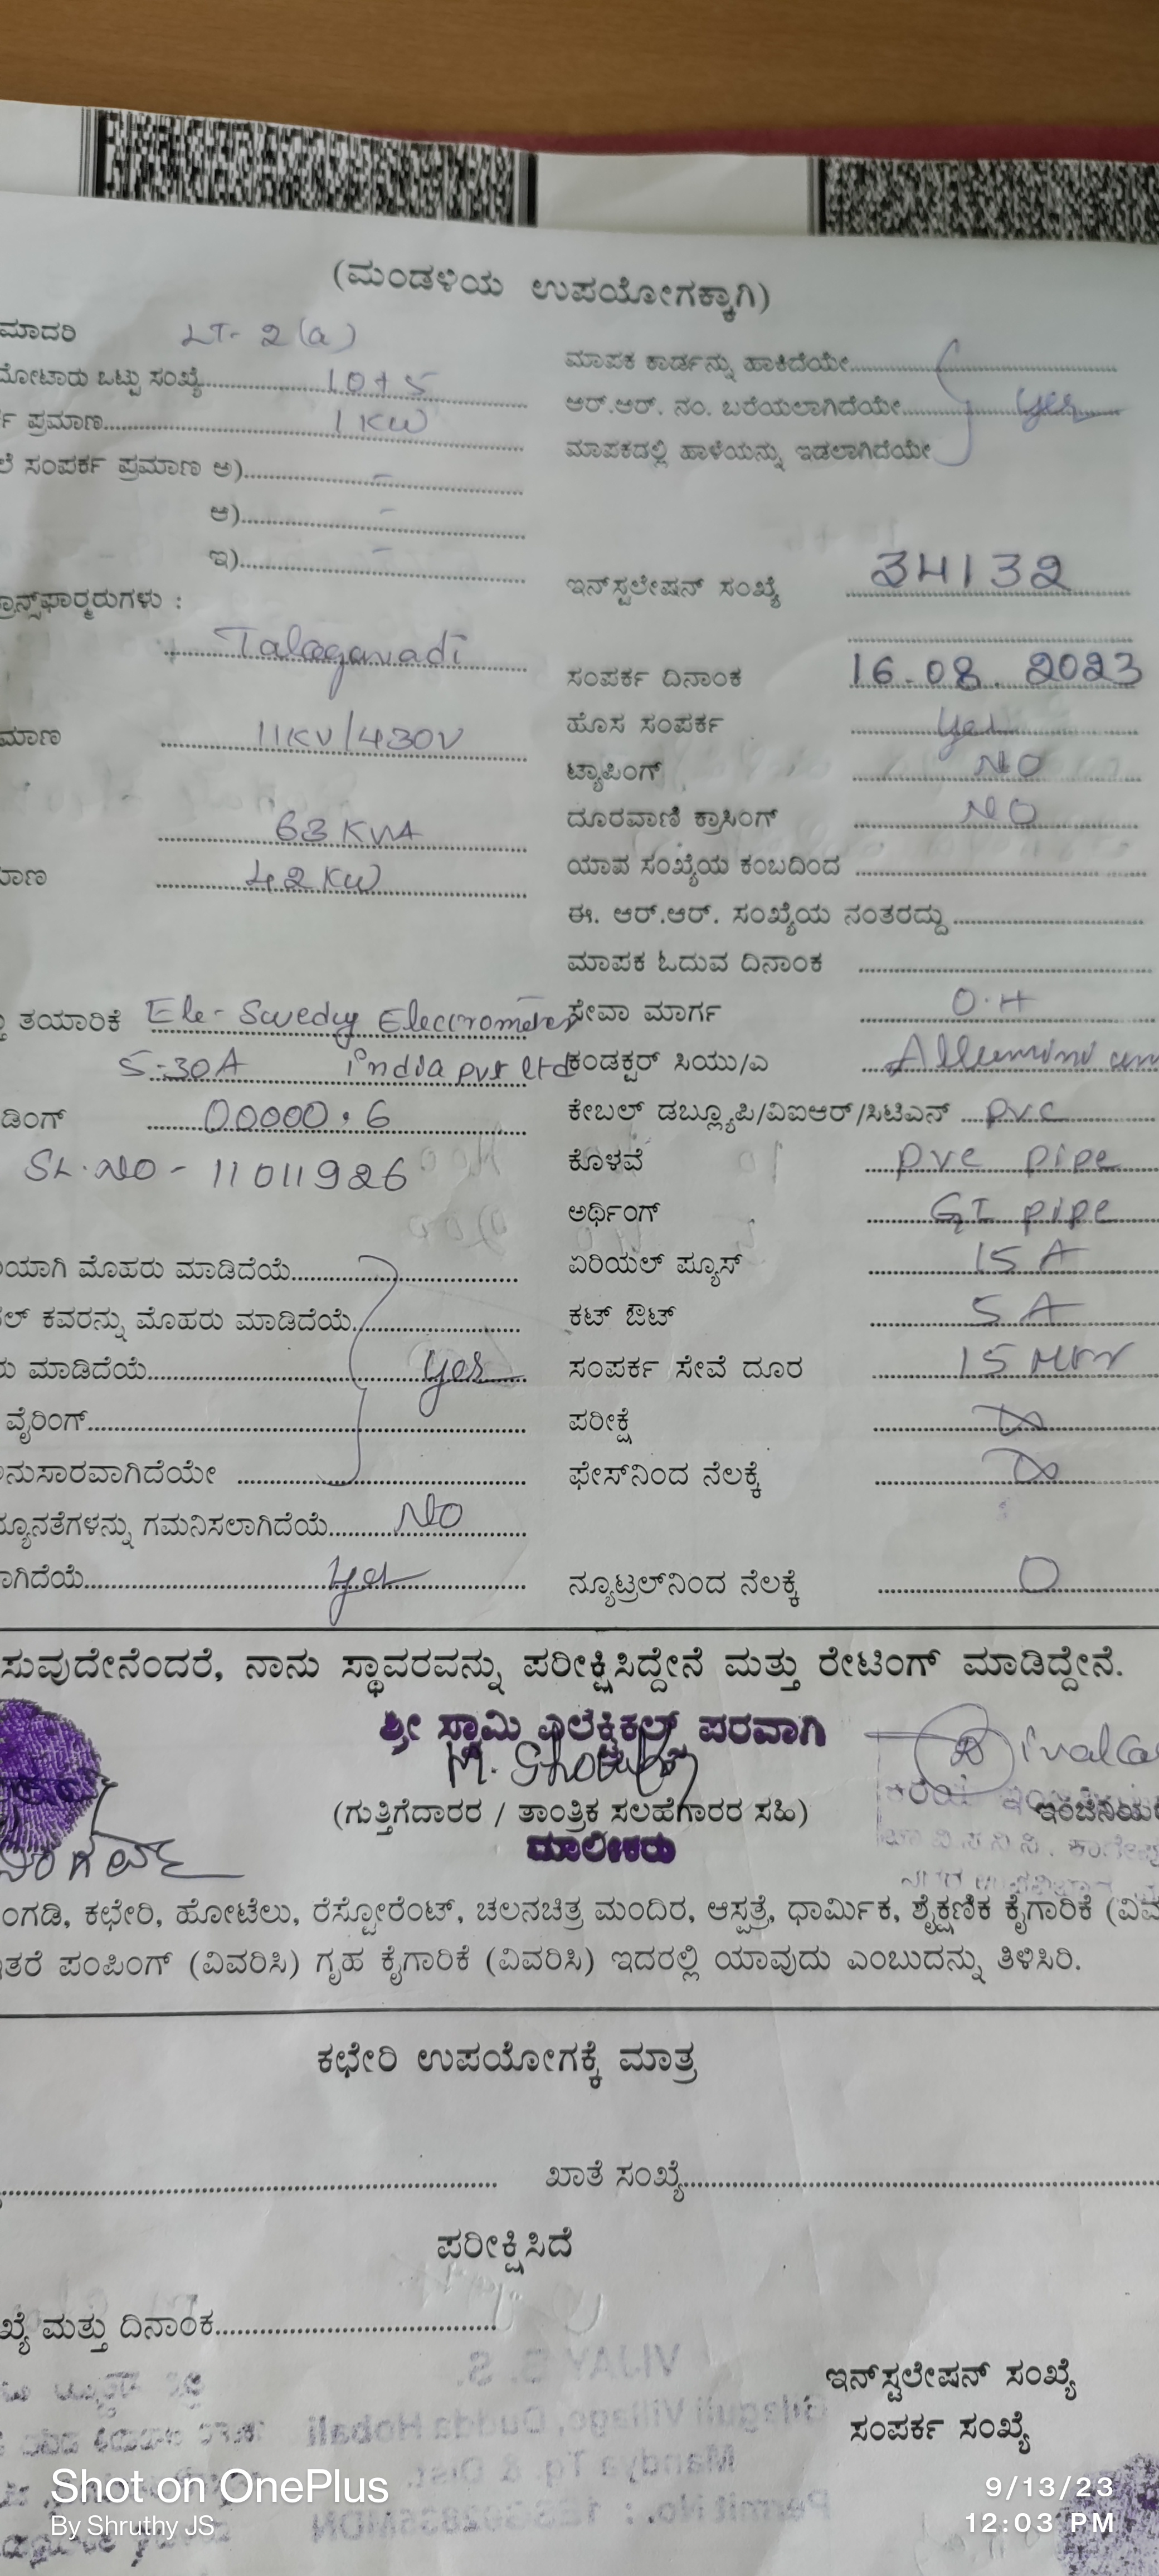 (ಮಂಡಳಿಯ ಉಪಯೋಗಕ್ಕಾಗಿ)
ಮಾದರಿ LT- 2(a)
ಮೋಟಾರು ಒಟ್ಟು ಸಂಖ್ಯೆ 10+5
ಪ್ರಮಾಣ 1 KW
ಸಂಪರ್ಕ ಪ್ರಮಾಣ ಅ) -
ಆ) -
ಇ) -
ಟ್ರಾನ್ಸ್‌ಫಾರ್ಮರುಗಳು :
Talagavadi
ಮಾಣ 11KV/430V
63 KVA
ಮಾಣ 42 KW
ತಯಾರಿಕೆ Ele- Swedy Electrometer
5-30A india pvt ltd
ಡಿಂಗ್ 00000.6
SL.NO - 11011926
ಯಾಗಿ ಮೊಹರು ಮಾಡಿದೆಯೆ
ಲ್ ಕವರನ್ನು ಮೊಹರು ಮಾಡಿದೆಯೆ
ರು ಮಾಡಿದೆಯೆ yes
ವೈರಿಂಗ್
ನುಸಾರವಾಗಿದೆಯೇ
ನ್ಯೂನತೆಗಳನ್ನು ಗಮನಿಸಲಾಗಿದೆಯೆ NO
ಾಗಿದೆಯೆ yes
ಮಾಪಕ ಕಾರ್ಡನ್ನು ಹಾಕಿದೆಯೇ
ಆರ್.ಆರ್. ನಂ. ಬರೆಯಲಾಗಿದೆಯೇ yes
ಮಾಪಕದಲ್ಲಿ ಹಾಳೆಯನ್ನು ಇಡಲಾಗಿದೆಯೇ
ಇನ್‌ಸ್ಟಲೇಷನ್ ಸಂಖ್ಯೆ 34132
ಸಂಪರ್ಕ ದಿನಾಂಕ 16.08.2023
ಹೊಸ ಸಂಪರ್ಕ yes
ಟ್ಯಾಪಿಂಗ್ NO
ದೂರವಾಣಿ ಕ್ರಾಸಿಂಗ್ NO
ಯಾವ ಸಂಖ್ಯೆಯ ಕಂಬದಿಂದ
ಈ. ಆರ್.ಆರ್. ಸಂಖ್ಯೆಯ ನಂತರದ್ದು
ಮಾಪಕ ಓದುವ ದಿನಾಂಕ
ಸೇವಾ ಮಾರ್ಗ O.H
ಕಂಡಕ್ಟರ್ ಸಿಯು/ಎ Allumini um
ಕೇಬಲ್ ಡಬ್ಲ್ಯೂಪಿ/ವಿಐಆರ್/ಸಿಟಿಎಸ್ pvc
ಕೊಳವೆ pvc pipe
ಅರ್ಥಿಂಗ್ GI pipe
ಏರಿಯಲ್ ಫ್ಯೂಸ್ 15 A
ಕಟ್ ಔಟ್ 5 A
ಸಂಪರ್ಕ ಸೇವೆ ದೂರ 15 Mtr
ಪರೀಕ್ಷೆ
ಫೇಸ್‌ನಿಂದ ನೆಲಕ್ಕೆ
ನ್ಯೂಟ್ರಲ್‌ನಿಂದ ನೆಲಕ್ಕೆ 0
ಸುವುದೇನೆಂದರೆ, ನಾನು ಸ್ಥಾವರವನ್ನು ಪರೀಕ್ಷಿಸಿದ್ದೇನೆ ಮತ್ತು ರೇಟಿಂಗ್ ಮಾಡಿದ್ದೇನೆ.
ಶ್ರೀ ಸ್ವಾಮಿ ಎಲೆಕ್ಟ್ರಿಕಲ್ಸ್ ಪರವಾಗಿ
(ಗುತ್ತಿಗೆದಾರರ / ತಾಂತ್ರಿಕ ಸಲಹೆಗಾರರ ಸಹಿ)
ಮಾಲೀಕರು
ಂಗಡಿ, ಕಛೇರಿ, ಹೋಟೆಲು, ರೆಸ್ಟೋರೆಂಟ್, ಚಲನಚಿತ್ರ ಮಂದಿರ, ಆಸ್ಪತ್ರೆ, ಧಾರ್ಮಿಕ, ಶೈಕ್ಷಣಿಕ ಕೈಗಾರಿಕೆ (ವಿವ
ಇತರೆ ಪಂಪಿಂಗ್ (ವಿವರಿಸಿ) ಗೃಹ ಕೈಗಾರಿಕೆ (ವಿವರಿಸಿ) ಇದರಲ್ಲಿ ಯಾವುದು ಎಂಬುದನ್ನು ತಿಳಿಸಿರಿ.
ಕಛೇರಿ ಉಪಯೋಗಕ್ಕೆ ಮಾತ್ರ
ಖಾತೆ ಸಂಖ್ಯೆ
ಪರೀಕ್ಷಿಸಿದೆ
ಖ್ಯೆ ಮತ್ತು ದಿನಾಂಕ
ಇನ್‌ಸ್ಟಲೇಷನ್ ಸಂಖ್ಯೆ
ಸಂಪರ್ಕ ಸಂಖ್ಯೆ
Shot on OnePlus
By Shruthy JS
9/13/23
12:03 PM